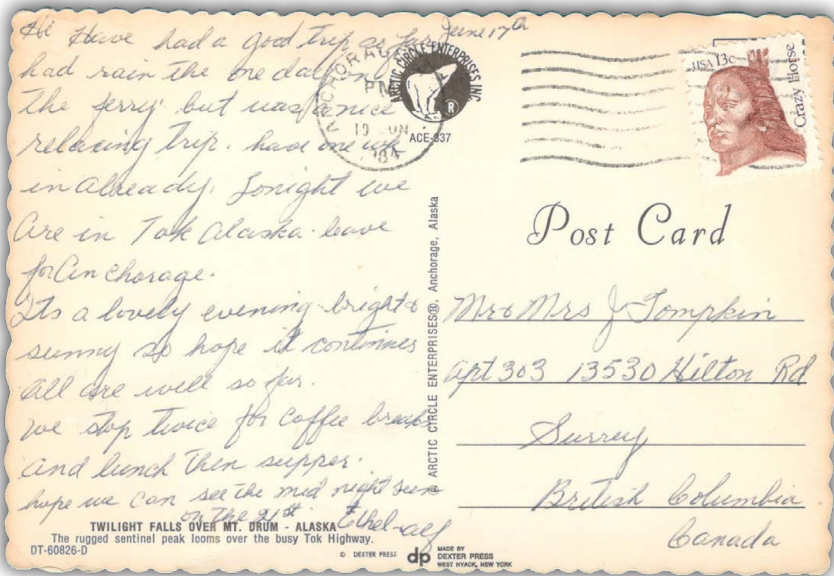 June 17th
Hi Have had a good trip as far
had rain the one day on
the ferry but was a nice
relaxing trip. had one wk
in already. Tonight we
are in Tok Alaska. leave
for Anchorage.
Its a lovely evening bright &
sunny so hope it continues
all are well so far.
we stop twice for coffee break
and lunch then supper.
hope we can see the mid night sun
on the 21st Ethel-alf
TWILIGHT FALLS OVER MT. DRUM - ALASKA
The rugged sentinel peak looms over the busy Tok Highway.
DT-60826-D
© DEXTER PRESS
dp MADE BY
DEXTER PRESS
WEST NYACK, NEW YORK
ANCHORAGE
PM
19 JUN
1984
ARCTIC CIRCLE ENTERPRISES INC.
®
ACE-337
© ARCTIC CIRCLE ENTERPRISES®, Anchorage, Alaska
USA 13c
Crazy Horse
Post Card
Mr & Mrs J Tompkin
Apt 303 13530 Hilton Rd
Surrey
British Columbia
Canada